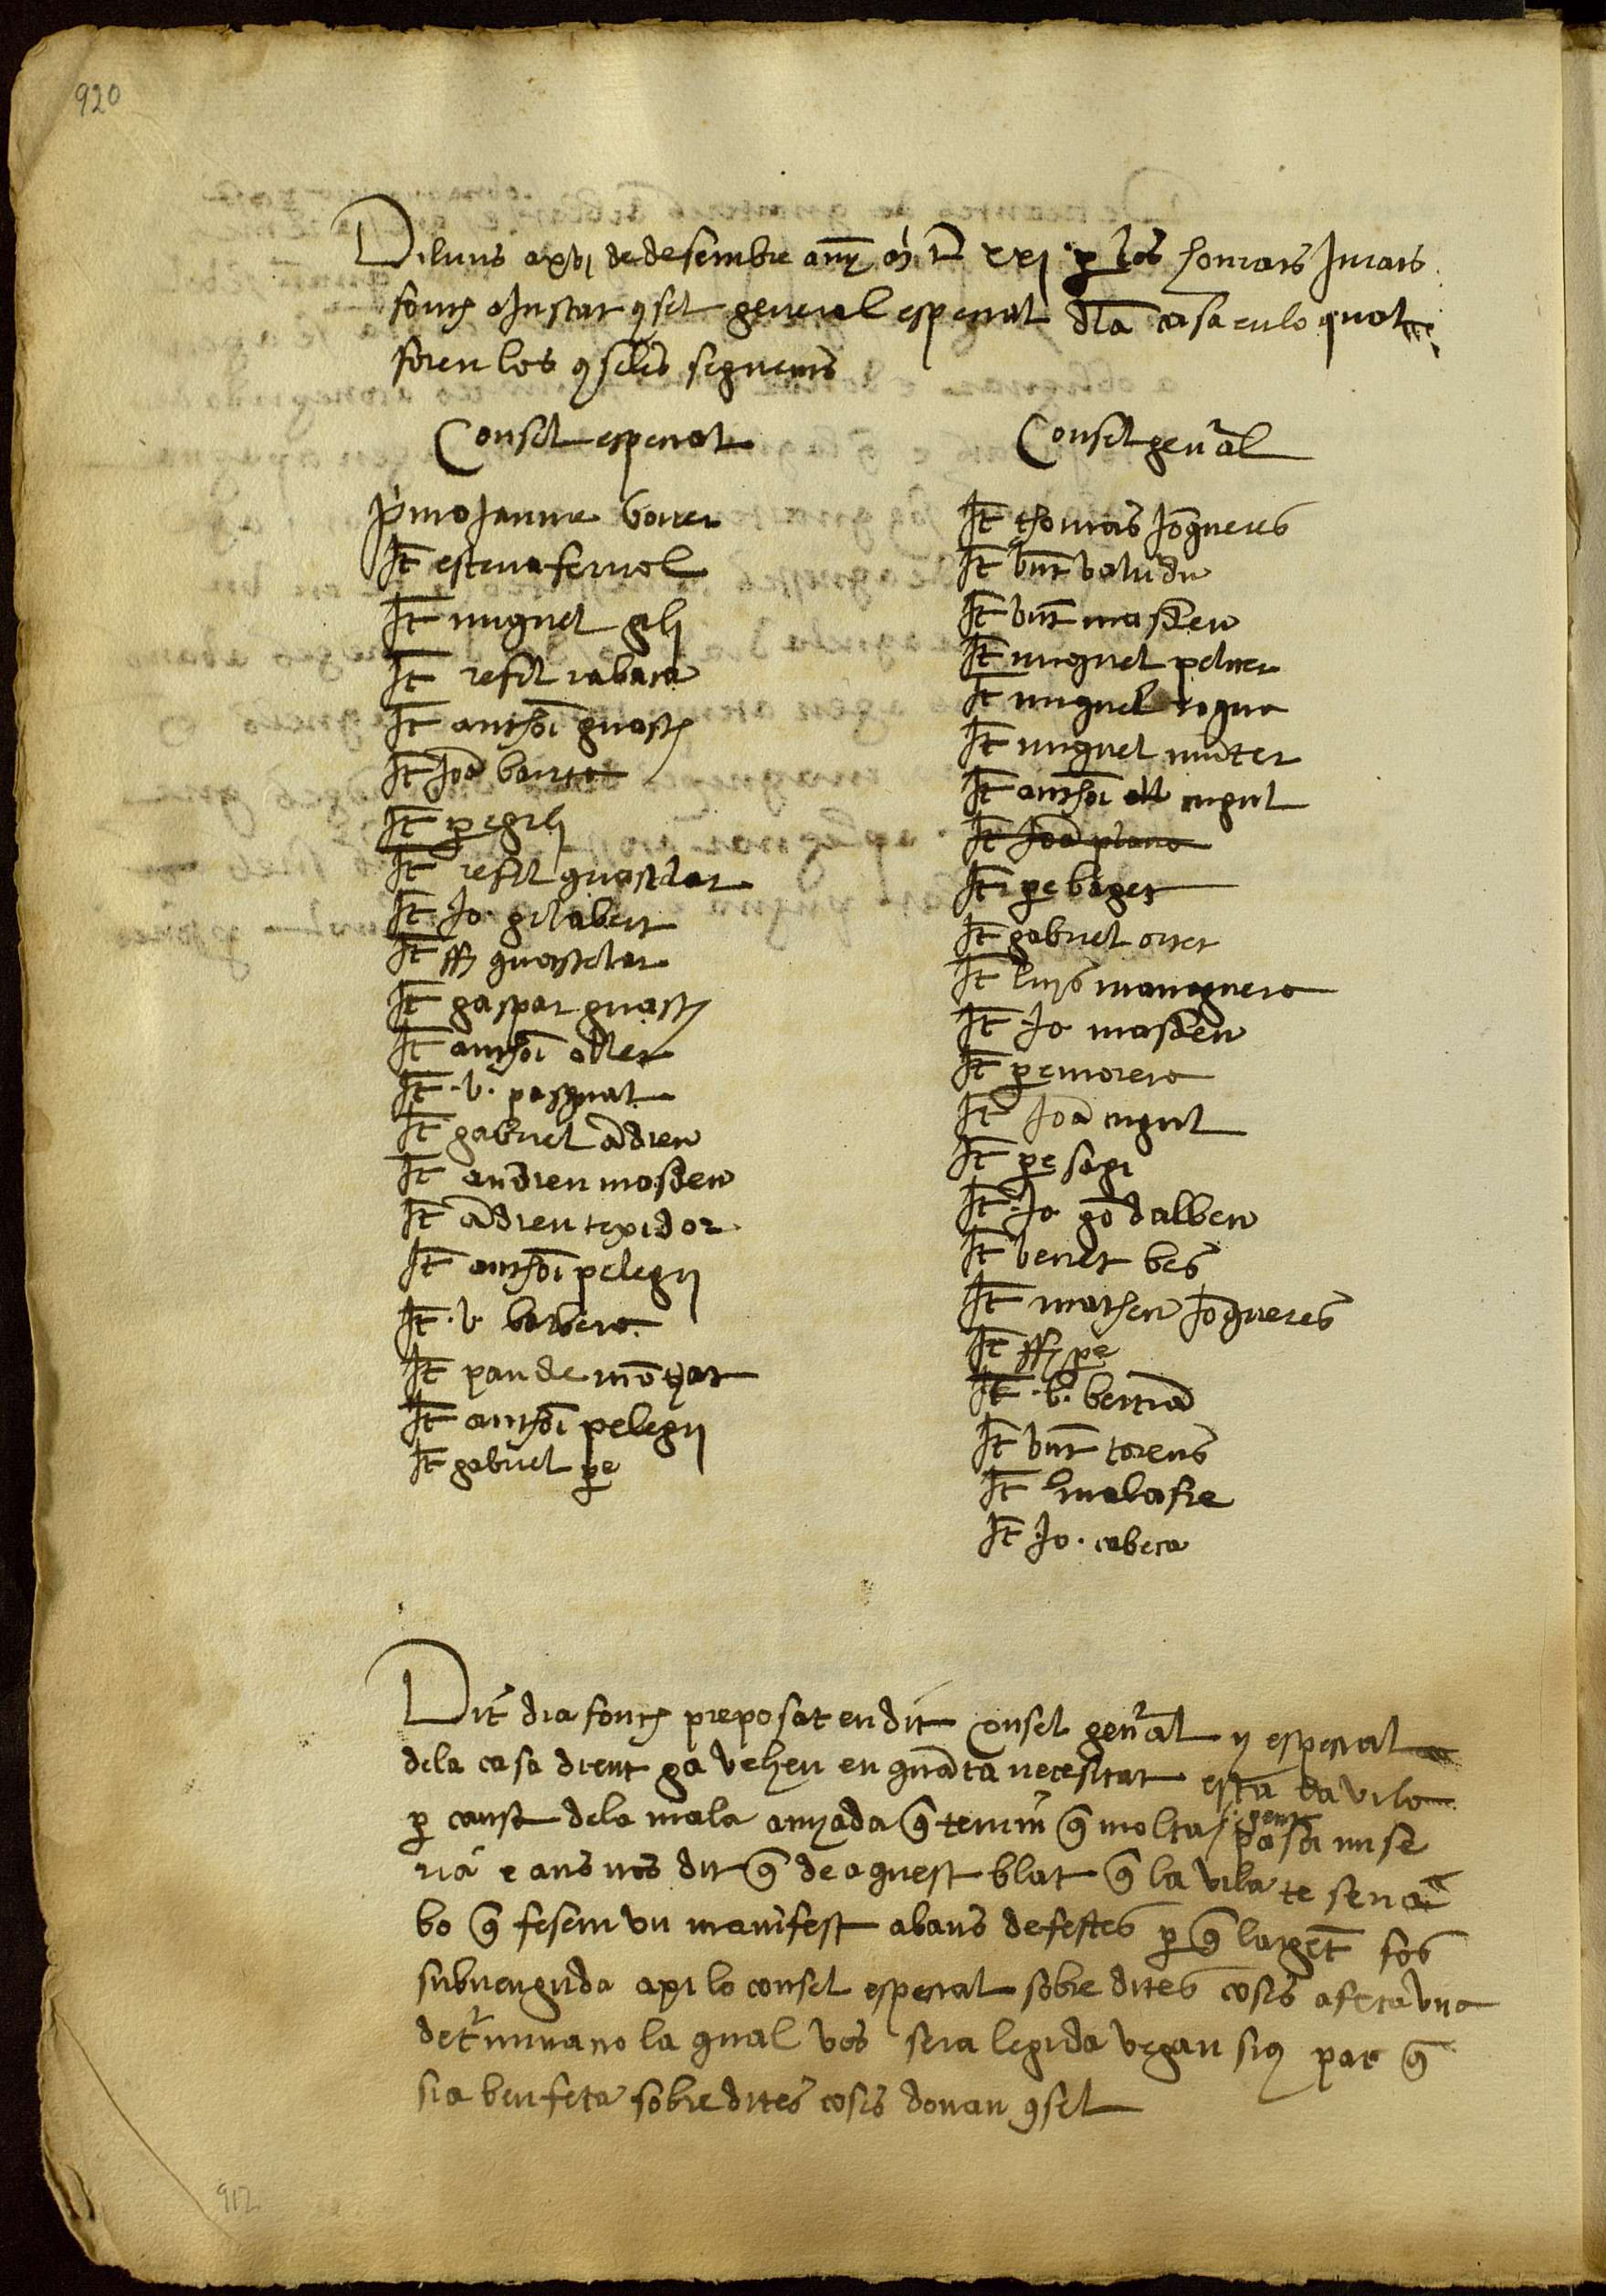 920
Diluns a xvj de desembre any m d xxj per los honrats Jurats
fonch aJustat consel general espesial dla casa en lo qual
foren los consels seguents
Consel espesial
p'mo Jaume borrer
It esteva ferrol
It miguel gili
It rafel
It anthoni guasch
It Joa barta
It pe gili
It rafel guasch
It Jo gilabert
It ff guasch
It gaspar guasch
It anthoni oller
It .b. pasqual
It gabriel adreu
It andreu masdeu
It adreu texidor
It anthoni pelegri
It .b. barbera
It pau de motyat
It anthoni pelegri
It gabriel pe
Consel gen'al
It thomas Jogueres
It bnt
It bnt masdeu
It miguel peliser
It miguel rogua
It miguel
It anthoni cugul
It Joa plana
It pe boger
It gabriel oller
It luys
It Jo masdeu
It pe morera
It Joa cugul
It pe sagi
It Jo godalbeu
It benet bes
It matheu Jogueres
It ff pe
It .b. bertra
It bnt torens
It l malafre
It Jo. cabesa
Dit dia fonch preposat en dit consel gen'al y espesial
dela casa dient ja vehen en quata necesitat esta la vila
p causa dela mala anyada q tenim q molta gent pasa mise
ria e ans nos dit q de aquest blat q la vila te seria
bo q fesem un manifest abans de festes p q la gent fos
subvenguda axi lo consel espesial sobre dites coses a feta una
det'minasio la qual vos sera legida vegan sius par q
sia ben feta sobre dites coses donau consel
912